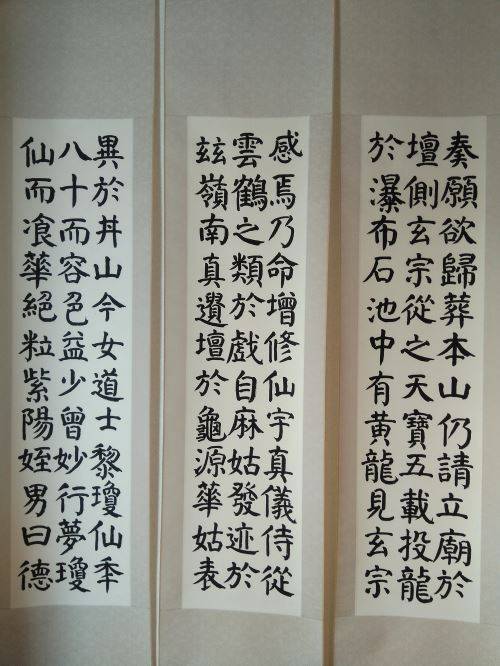 奏願欲歸葬本山仍請立廟於
壇側玄宗從之天寶五載投龍
於瀑布石池中有黄龍見玄宗
感焉乃命增修仙宇真儀侍從
雲鶴之類於戲自麻姑發迹於
茲嶺南真遺壇於龜源華姑表
異於丼山今女道士黎瓊仙秊
八十而容色益少曾妙行夢瓊
仙而飡華絕粒紫陽姪男曰德